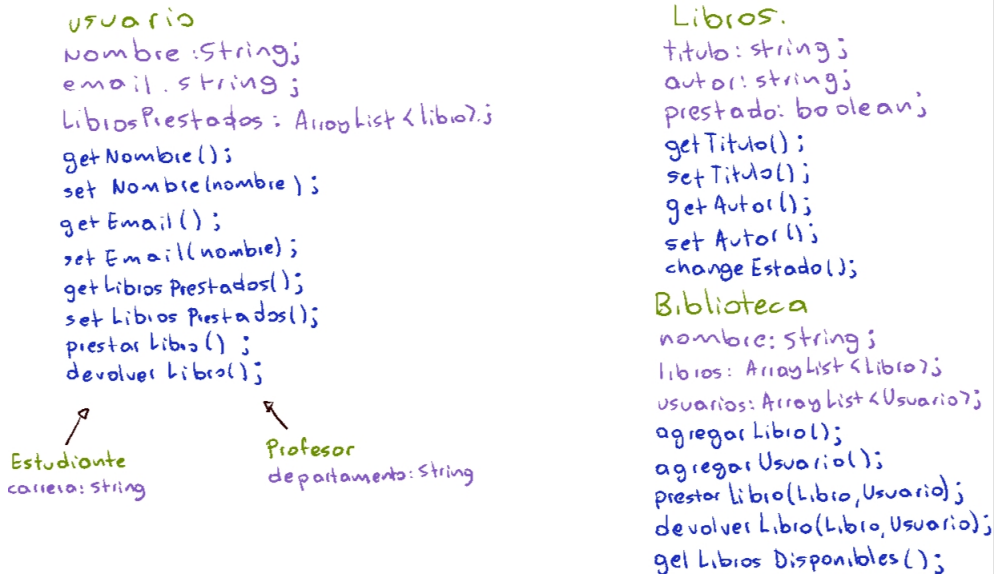 usuario
Nombre :String;
email. string ;
LibrosPrestados : ArrayList <libro>.;
getNombre();
set Nombre(nombre );
getEmail() ;
set Email(nombre) ;
getLibros Prestados();
set Libros Prestados();
prestar Libro() ;
devolver Libro();
Estudiante
carrera: string
Profesor
departamento: String
Libros.
titulo: string ;
autor: string;
prestado: boolean;
getTitulo() ;
setTitulo();
getAutor();
set Autor();
change Estado();
Biblioteca
nombre: String ;
libros: ArrayList <Libro>;
usuarios: ArrayList <Usuario>;
agregar Libro();
agregar Usuario();
prestar libro(Libro, Usuario);
devolver Libro(Libro, Usuario);
get Libros Disponibles();